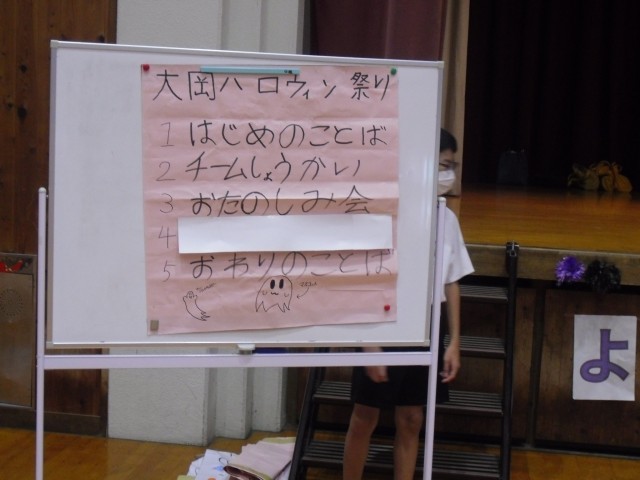 大岡ハロウィン祭り
1 はじめのことば
2 チームしょうかい
3 おたのしみ会
4
5 おわりのことば
よ